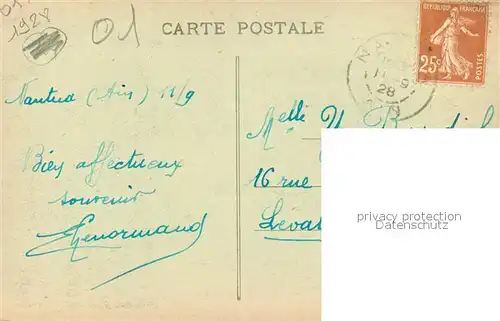 01
1928
01
CARTE POSTALE
REPUBLIQUE FRANÇAISE
25c
POSTES
28
Nantua (Ain) 11/9
Bien affectueux
souvenir
Lenormand
Melle Y.
16 rue
Leval
privacy protection
DATENSCHUTZ